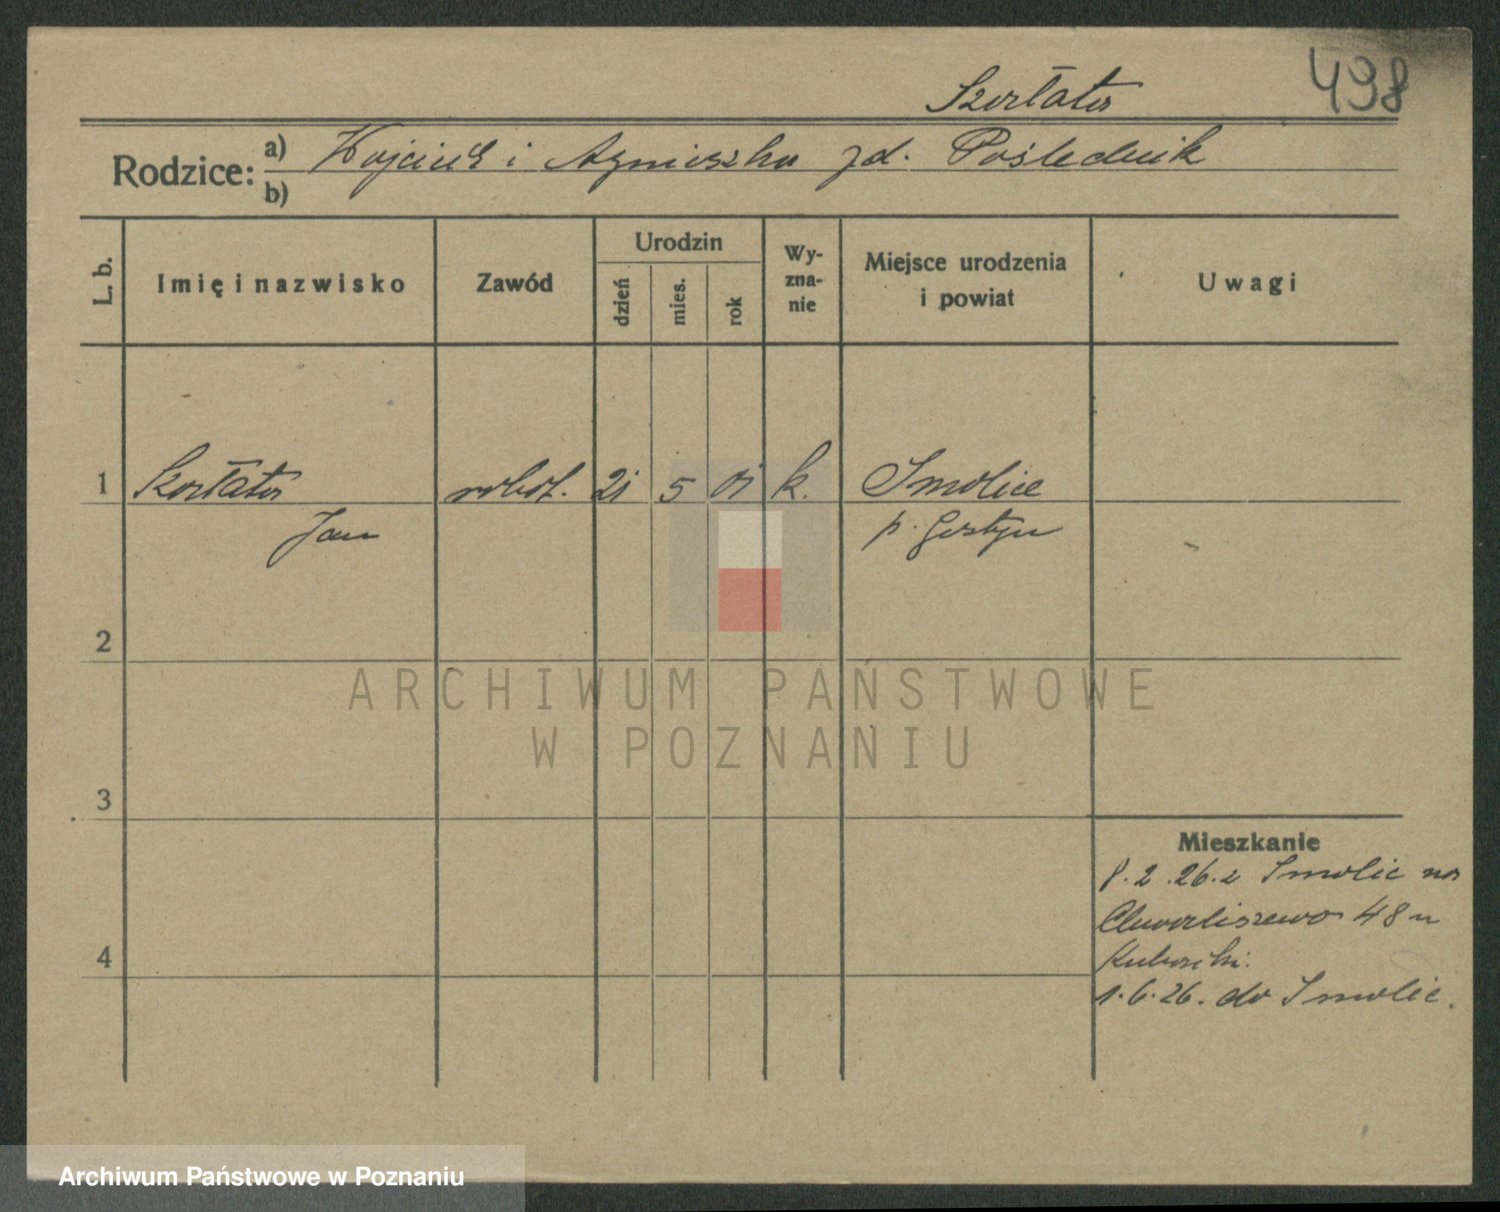 498
Szkarłatos
Rodzice: a) Wojciech i Agnieszka zd. Poślednik
b)
L. b.
Imię i nazwisko
Zawód
Urodzin
dzień
mies.
rok
Wy-
zna-
nie
Miejsce urodzenia
i powiat
Uwagi
1 robot. 21 5 01 k. Smolice
Jan p. Gostyn
2
3
4
Mieszkanie
8.2.26. z Smolic na
48 u
1.6.26. do Smolic.
ARCHIWUM PAŃSTWOWE
W POZNANIU
Archiwum Państwowe w Poznaniu